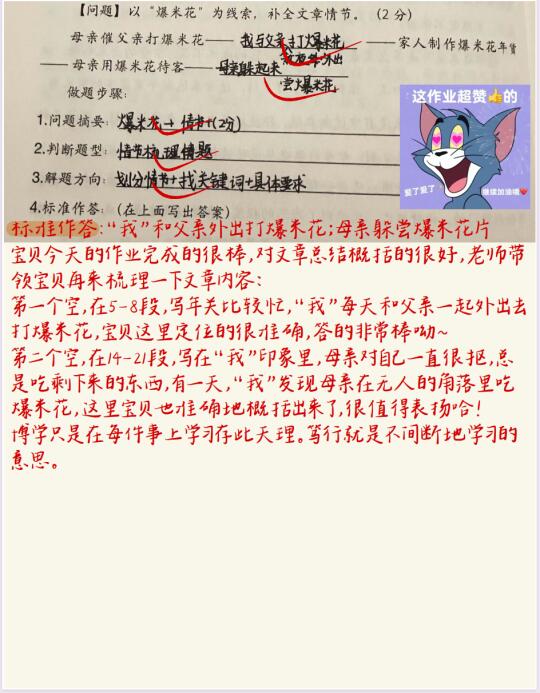 【问题】以“爆米花”为线索，补全文章情节。（2分）
母亲催父亲打爆米花——我与父亲打爆米花——家人制作爆米花年货
——母亲用爆米花待客——母亲躲起来
尝爆米花
做题步骤：
1.问题摘要：爆米花→情节(2分)
2.判断题型：情节梳理情题
3.解题方向：划分情节+找关键词+具体要求
4.标准作答：（在上面写出答案）
这作业超赞👍的
爱了爱了
继续加油噢❤
标准作答:“我”和父亲外出打爆米花;母亲躲尝爆米花片
宝贝今天的作业完成的很棒,对文章总结概括的很好,老师带
领宝贝再来梳理一下文章内容:
第一个空,在5-8段,写年关比较忙,“我”每天和父亲一起外出去
打爆米花,宝贝这里定位的很准确,答的非常棒呦~
第二个空,在14-21段,写在“我”印象里,母亲对自己一直很抠,总
是吃剩下来的东西,有一天,“我”发现母亲在无人的角落里吃
爆米花,这里宝贝也准确地概括出来了,很值得表扬哈!
博学只是在每件事上学习存此天理。笃行就是不间断地学习的
意思。